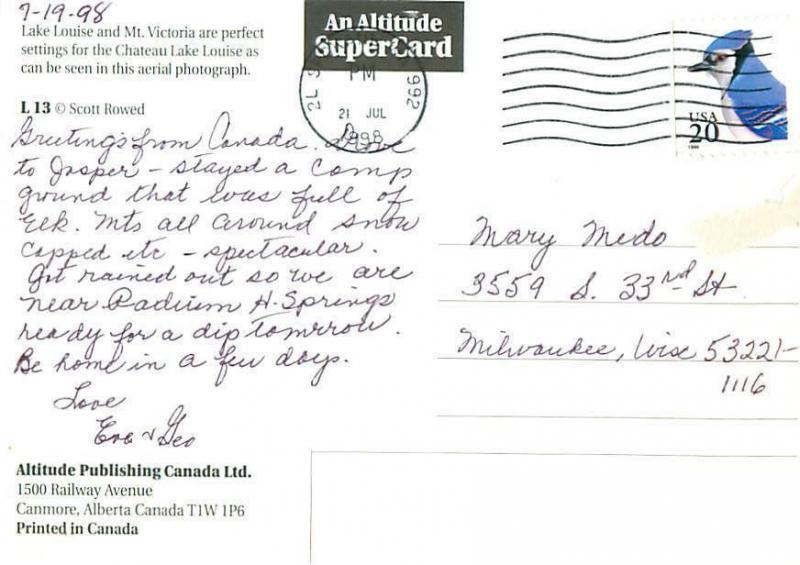 7-19-98
Lake Louise and Mt. Victoria are perfect
settings for the Chateau Lake Louise as
can be seen in this aerial photograph.
L 13 © Scott Rowed
An Altitude
SuperCard
PM
21 JUL
1998
992
USA
20
Greetings from Canada. Drove
to Jasper - stayed a camp
ground that was full of
Elk. Mts all around snow
capped etc - spectacular.
Got rained out so we are
near Radium H. Springs
ready for a dip tomrrow.
Be home in a few days.
Love
Eva & Geo
Mary Medo
3559 S. 33rd St
Milwaukee, Wisc 53221-
1116
Altitude Publishing Canada Ltd.
1500 Railway Avenue
Canmore, Alberta Canada T1W 1P6
Printed in Canada